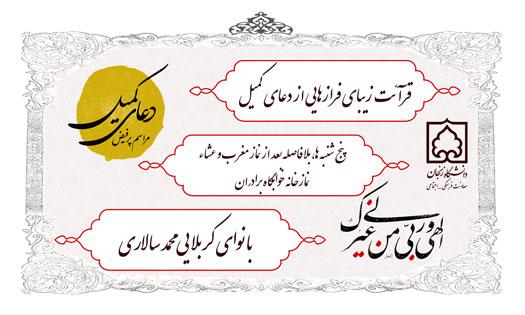 قرائت زیبای فرازهایی از دعای کمیل
مراسم پرفیض
دعای کمیل
پنج شنبه ها، بلافاصله بعد از نماز مغرب و عشاء
نمازخانه خوابگاه برادران
دانشگاه زنجان
معاونت فرهنگی - اجتماعی
الهی و ربی من لی غیرک
با نوای کربلایی محمد سالاری